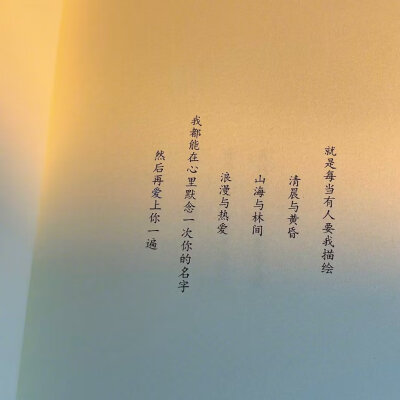 就是每当有人要我描绘
清晨与黄昏
山海与林间
浪漫与热爱
我都能在心里默念一次你的名字
然后再爱上你一遍